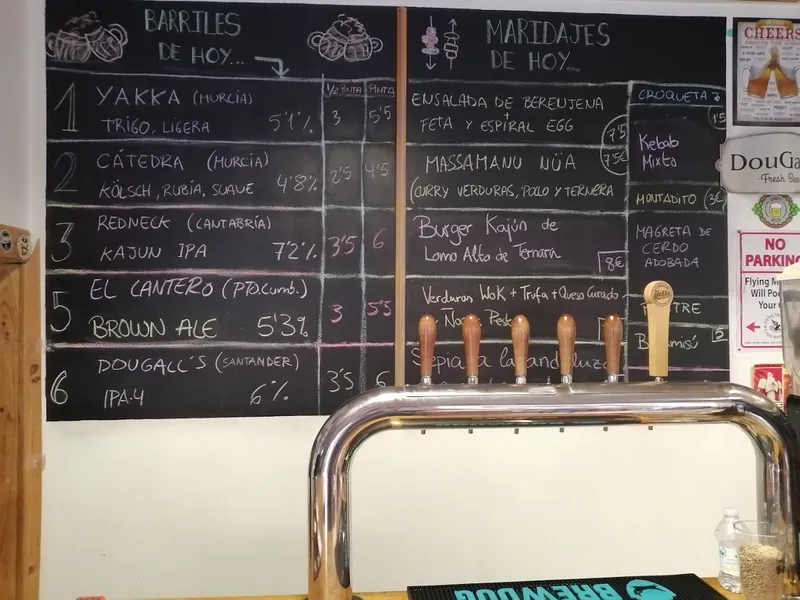 BARRILES
DE HOY...
1/2 PINTA PINTA
1 YAKKA (MURCIA)
TRIGO, LIGERA 5'1% 3 5'5
2 CÁTEDRA (MURCIA)
KÖLSCH, RUBÍA, SUAVE 4'8% 2'5 4'5
3 REDNECK (CANTABRÍA)
KAJUN IPA 7'2% 3'5 6
5 EL CANTERO (PTO.LUMB.)
BROWN ALE 5'3% 3 5'5
6 DOUGALL'S (SANTANDER)
IPA·4 6% 3'5 6
MARIDAJES
DE HOY...
ENSALADA DE BERENJENA
+
FETA Y ESPIRAL EGG 7'5
MASSAMANU NÜA 7'5€
(CURRY VERDURAS, POLLO Y TERNERA
Burger Kajún de
Lomo Alto de Ternera 8€
Verduras Wok + Trufa + Queso Curado
Sepia a la andaluza
CROQUETAS
1'5
Kebab
Mixto
MONTADITO (3€)
MAGRETA DE
CERDO
ADOBADA
5
CHEERS
DouGa
-Fresh Be
NO
PARKING
Flying M
Will Po
Your
BREWDOG